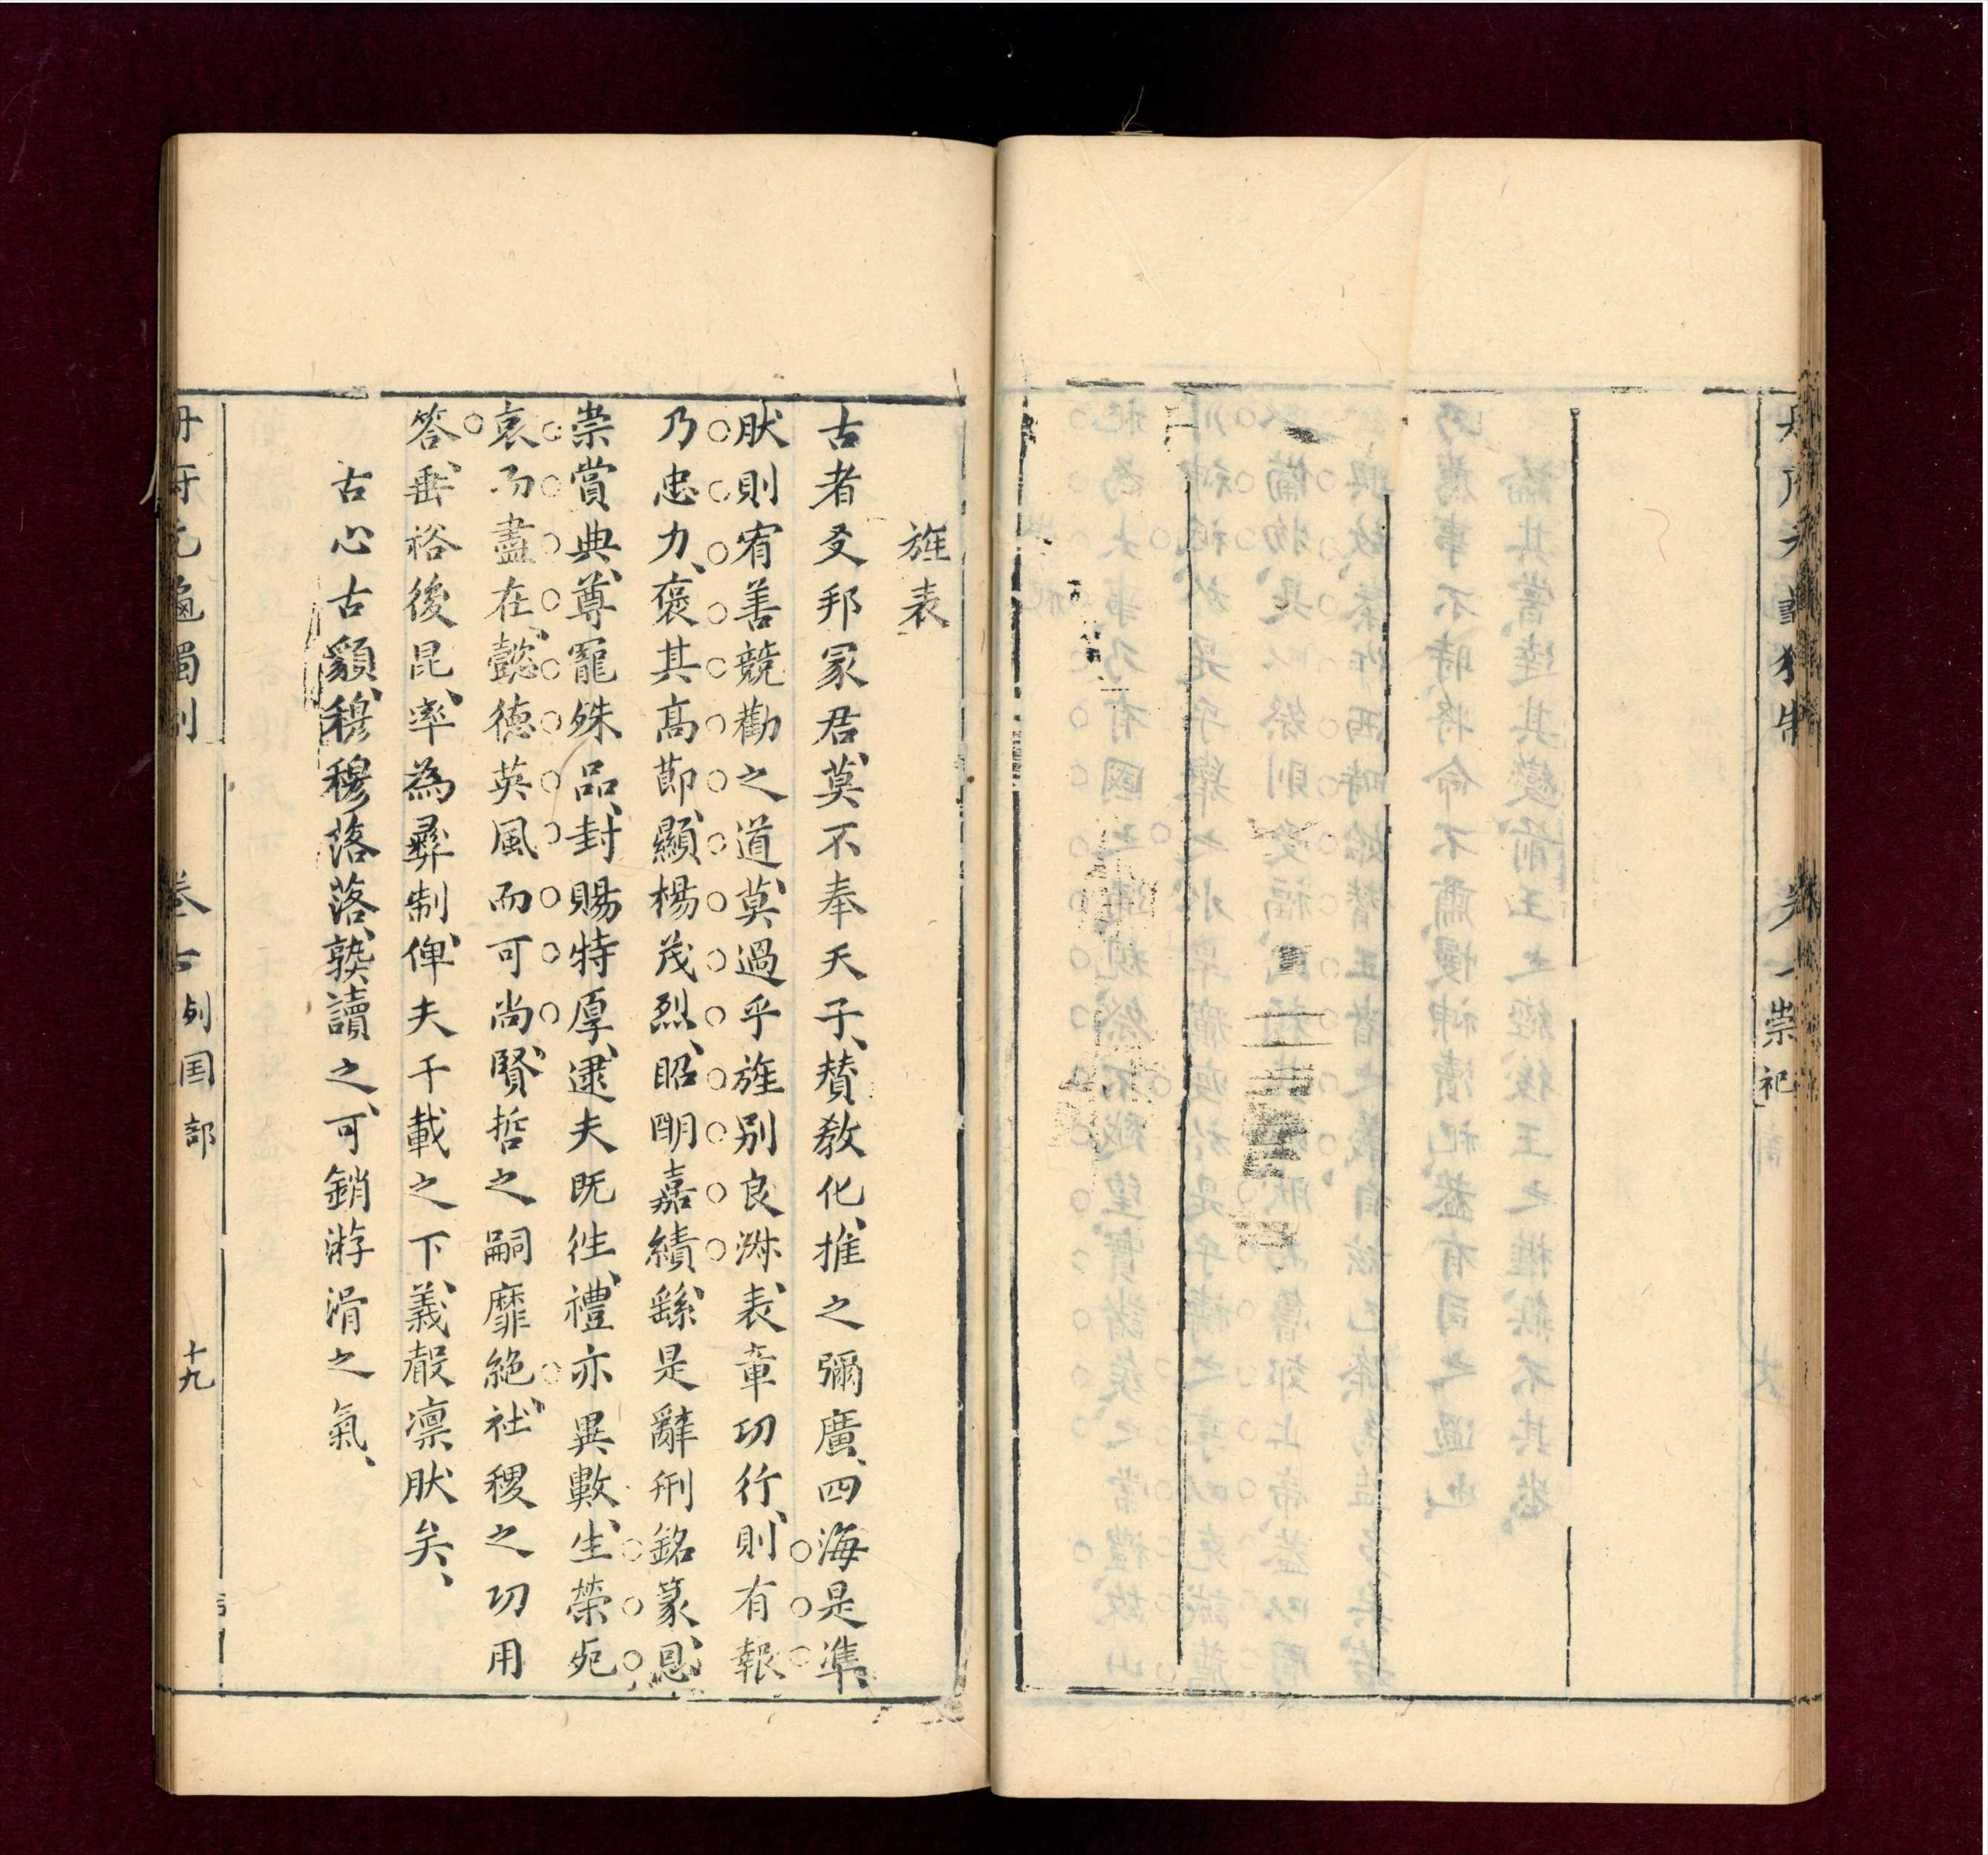 崇祀
旌表
古者㕛邦冢君莫不奉天子、賛敎化、推之彌廣、四海是準、
肰則宥善競勸之道、莫過乎旌别良淑、表章功行、則有報
乃忠力、褒其高節、顯楊茂烈、昭明嘉績、繇是辭刑銘篆、恩
崇賞典、尊寵殊品、封賜特厚、逮夫既徃、禮亦異數、生榮死
哀、而盡在、懿德英風而可尚、賢哲之嗣靡絶、社稷之功用
答、垂裕後昆、率為彞制、俾夫千載之下、義敲凛肰矣、
古心古貌、穆穆落落、熟讀之、可銷游滑之氣、
卷 七 列国部 十九